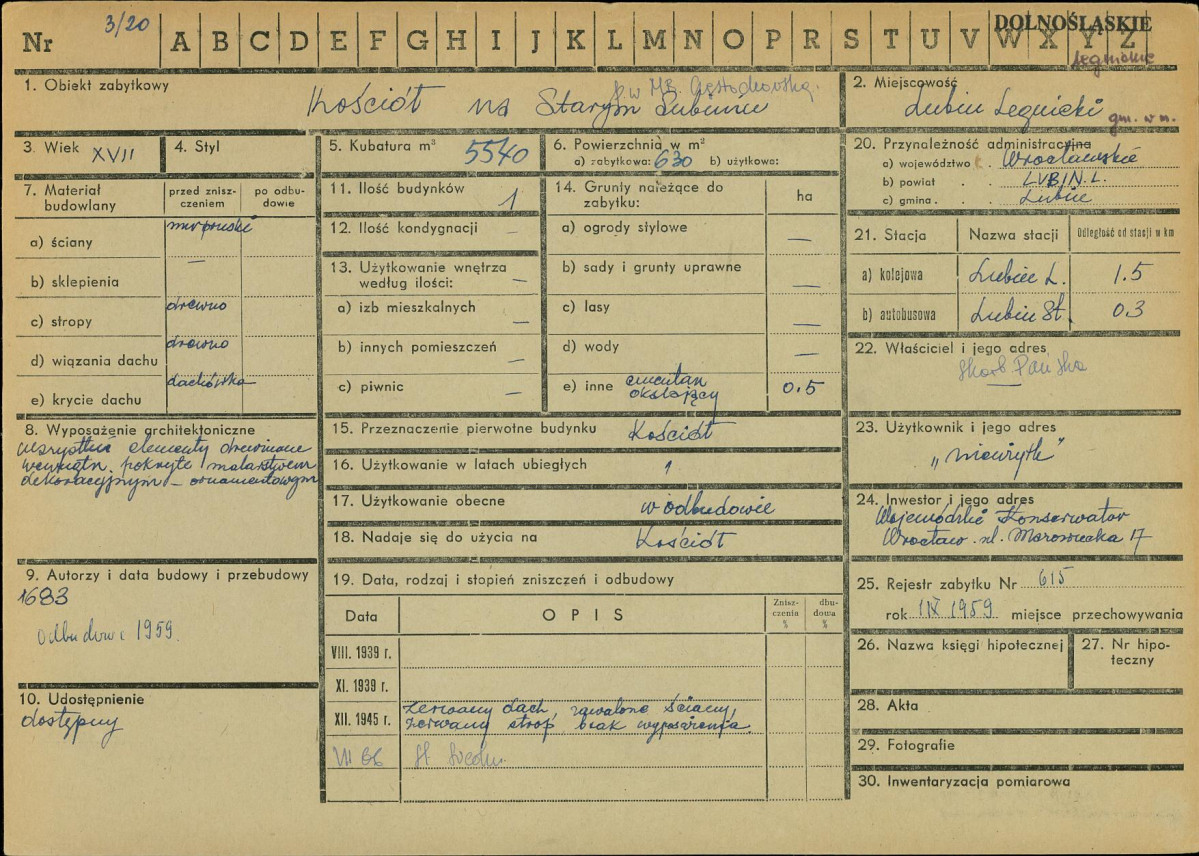 Nr 3/20 A B C D E F G H I J K L M N O P R S T U V W X Y Z
DOLNOŚLĄSKIE
legnickie
1. Obiekt zabytkowy
Kościół na Starym Lubinie
p.w MB. Częstochowską.
2. Miejscowość
Lubin Legnicki gm. w m.
3. Wiek XVII
4. Styl
5. Kubatura m³ 5540
6. Powierzchnia w m²
a) zabytkowa: 630 b) użytkowa:
7. Materiał budowlany
przed zniszczeniem
po odbudowie
a) ściany
b) sklepienia —
c) stropy drewno
d) wiązania dachu drewno
e) krycie dachu dachówka
8. Wyposażenie architektoniczne
wszystkie elementy drewniane
wewnątrz. pokryte malarstwem
dekoracyjnym – ornamentowym
9. Autorzy i data budowy i przebudowy
1683
Odbudowa 1959.
10. Udostępnienie
dostępny
11. Ilość budynków 1
12. Ilość kondygnacji —
13. Użytkowanie wnętrza
według ilości: —
a) izb mieszkalnych —
b) innych pomieszczeń —
c) piwnic —
14. Grunty należące do
zabytku: ha
a) ogrody stylowe —
b) sady i grunty uprawne —
c) lasy —
d) wody —
e) inne cmentarz
okalający 0.5
15. Przeznaczenie pierwotne budynku Kościół
16. Użytkowanie w latach ubiegłych
17. Użytkowanie obecne w odbudowie
18. Nadaje się do użycia na Kościół
19. Data, rodzaj i stopień zniszczeń i odbudowy
Data OPIS Zniszczenia % dbudowa %
VIII. 1939 r.
XI. 1939 r.
XII. 1945 r. zerwany dach, zawalone ściany,
zerwany strop, brak wyposażenia.
VII 66
20. Przynależność administracyjna
a) województwo . Wrocławskie
b) powiat . . LUBIN L.
c) gmina . . Lubin
21. Stacja Nazwa stacji Odległość od stacji w km
a) kolejowa Lubin L. 1.5
b) autobusowa Lubin St. 0.3
22. Właściciel i jego adres
Skarb Państwa
23. Użytkownik i jego adres
24. Inwestor i jego adres
Wojewódzki Konserwator
Wrocław. ul. 17
25. Rejestr zabytku Nr 615
rok IX 1959 miejsce przechowywania
26. Nazwa księgi hipotecznej
27. Nr hipoteczny
28. Akta
29. Fotografie
30. Inwentaryzacja pomiarowa